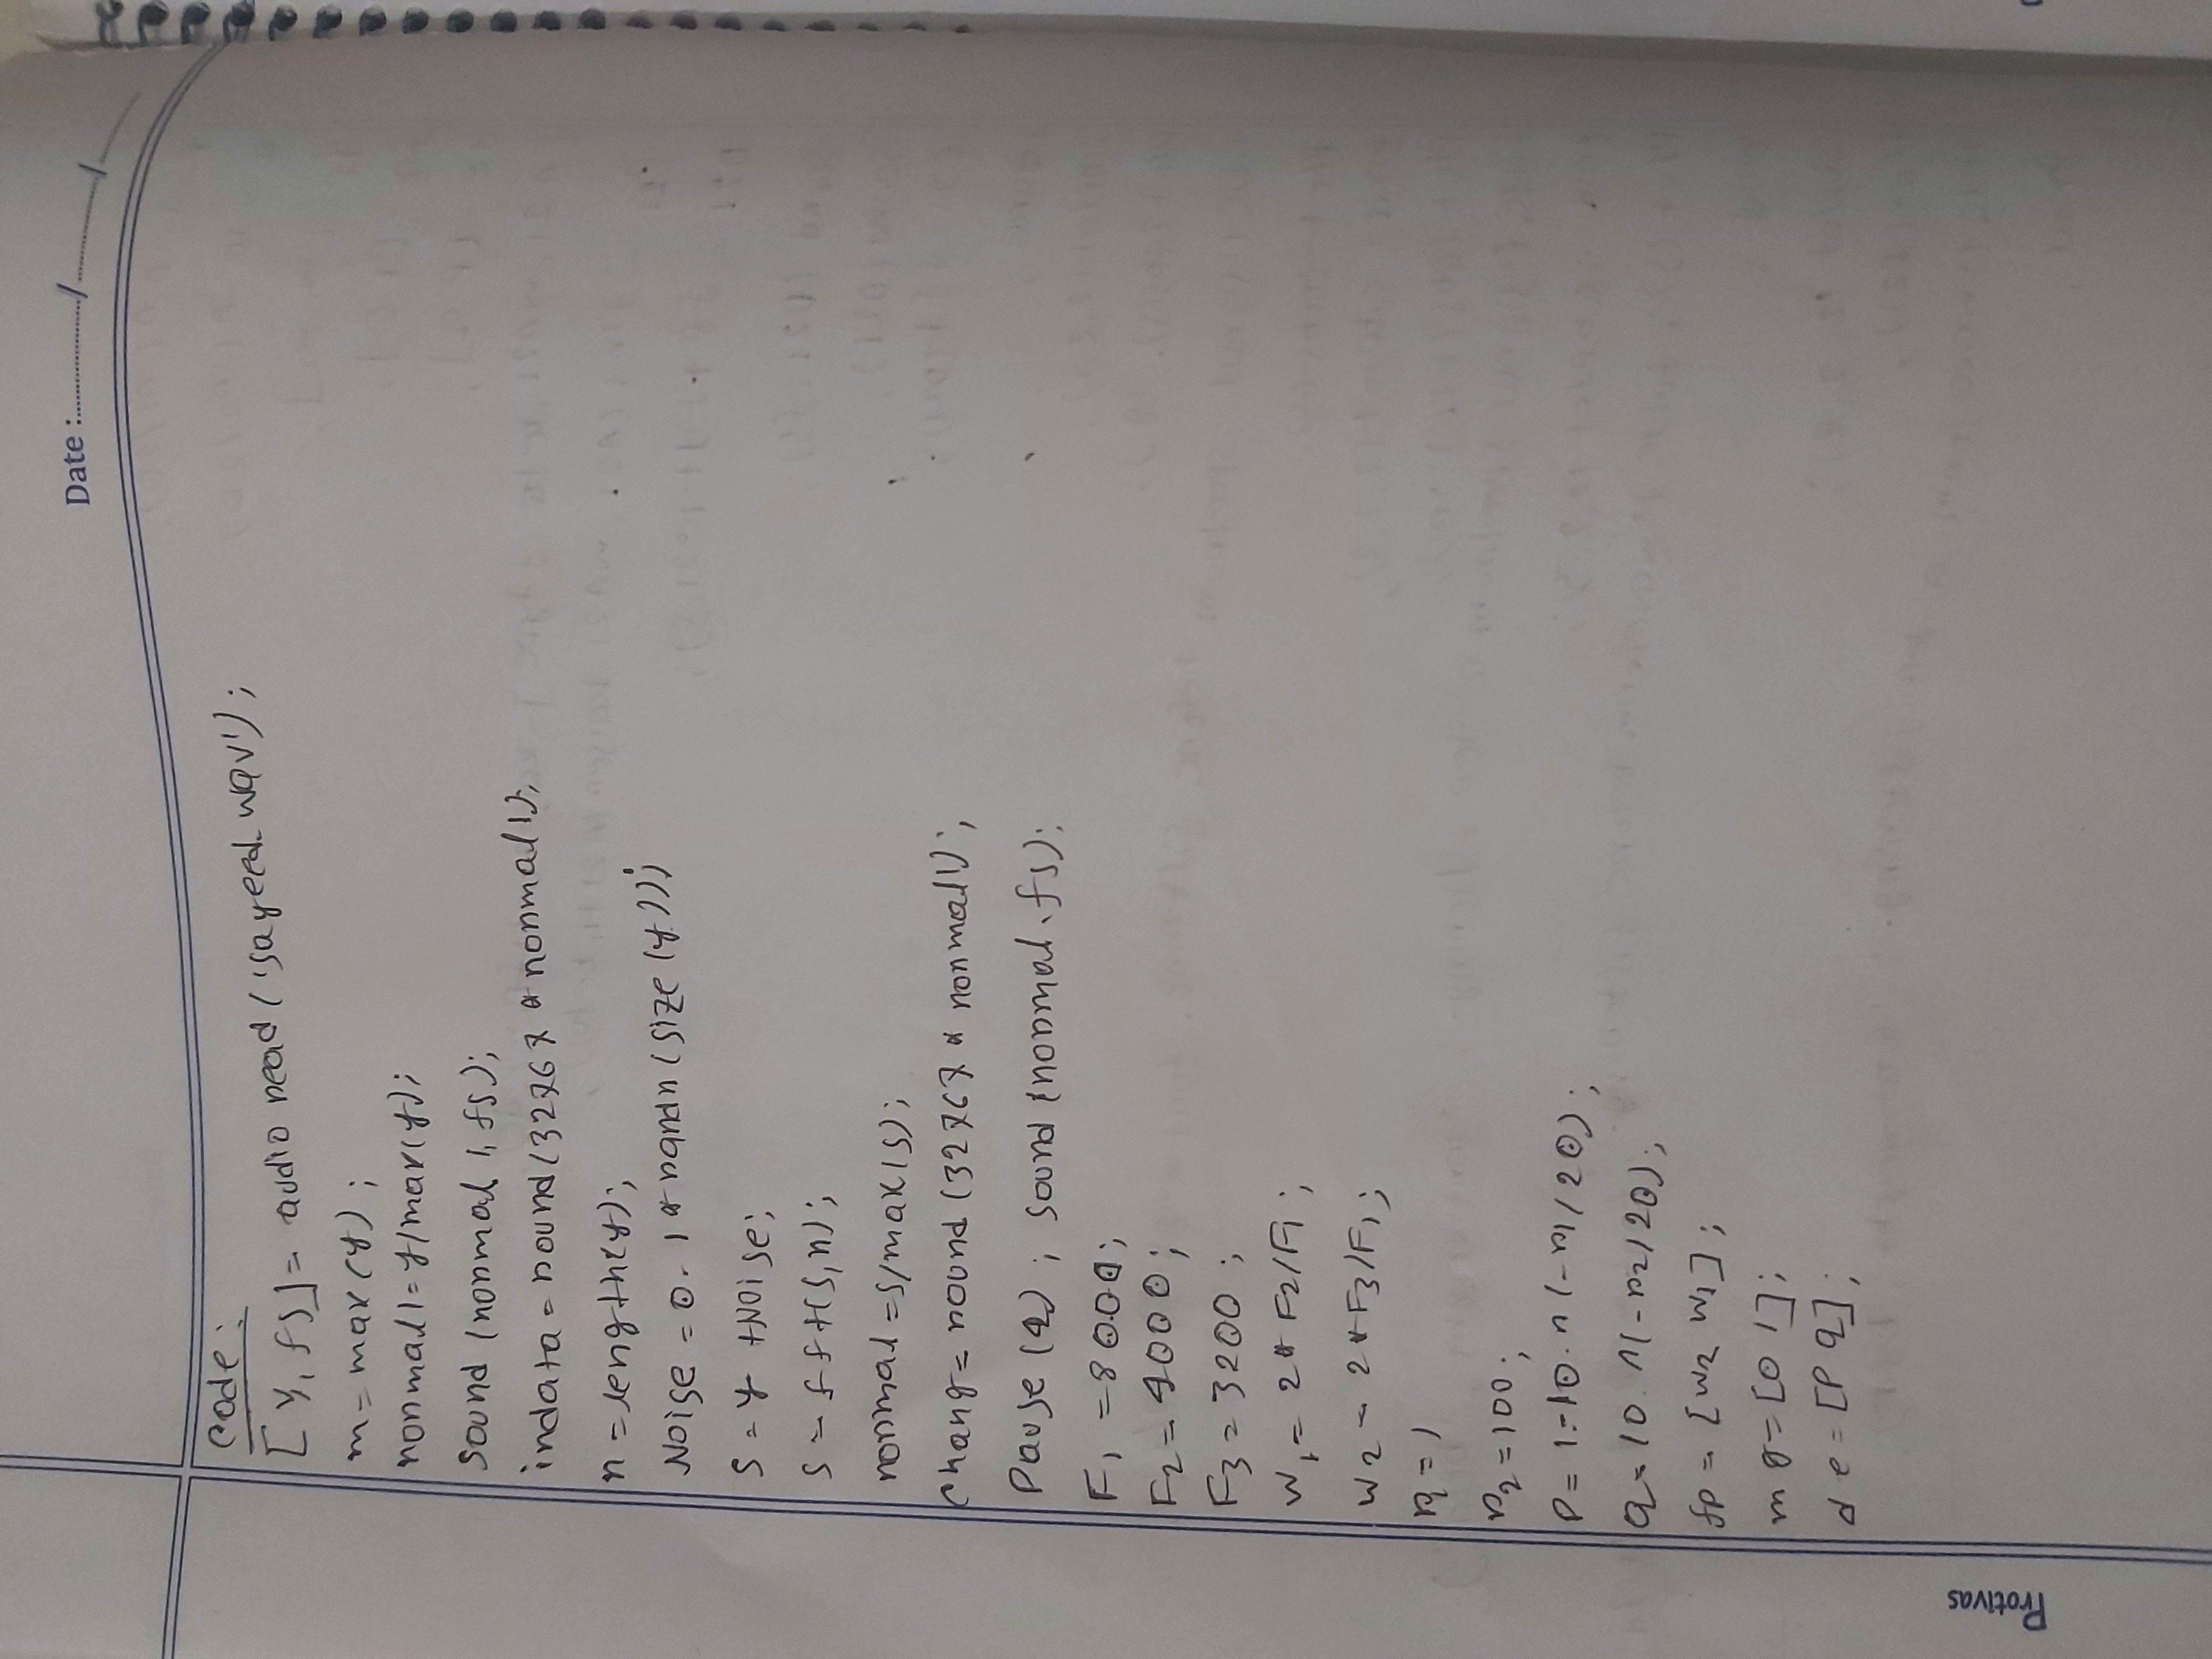 Date :............/............/......
code:
[y, fs] = audio read ('sayeed.wav');
m = max(y);
normal1 = y/max(y);
sound (normal 1, fs);
indata = round (32767 * normal1);
n = length(y);
Noise = 0.1 * randn (size (y));
s = y + Noise;
S = fft(s,n);
normal = s/max(s);
chang = round (32767 * normal1);
Pause (2); sound (normal.fs);
F1 = 8000;
F2 = 4000;
F3 = 3200;
W1 = 2 * F2/F1;
W2 = 2 * F3/F1;
r1 = 1
r2 = 100;
P = 1-10.^(-r1/20);
q = 10.^(-r2/20);
fp = [W2 W1];
mg = [0 1];
de = [P q];
Protivas